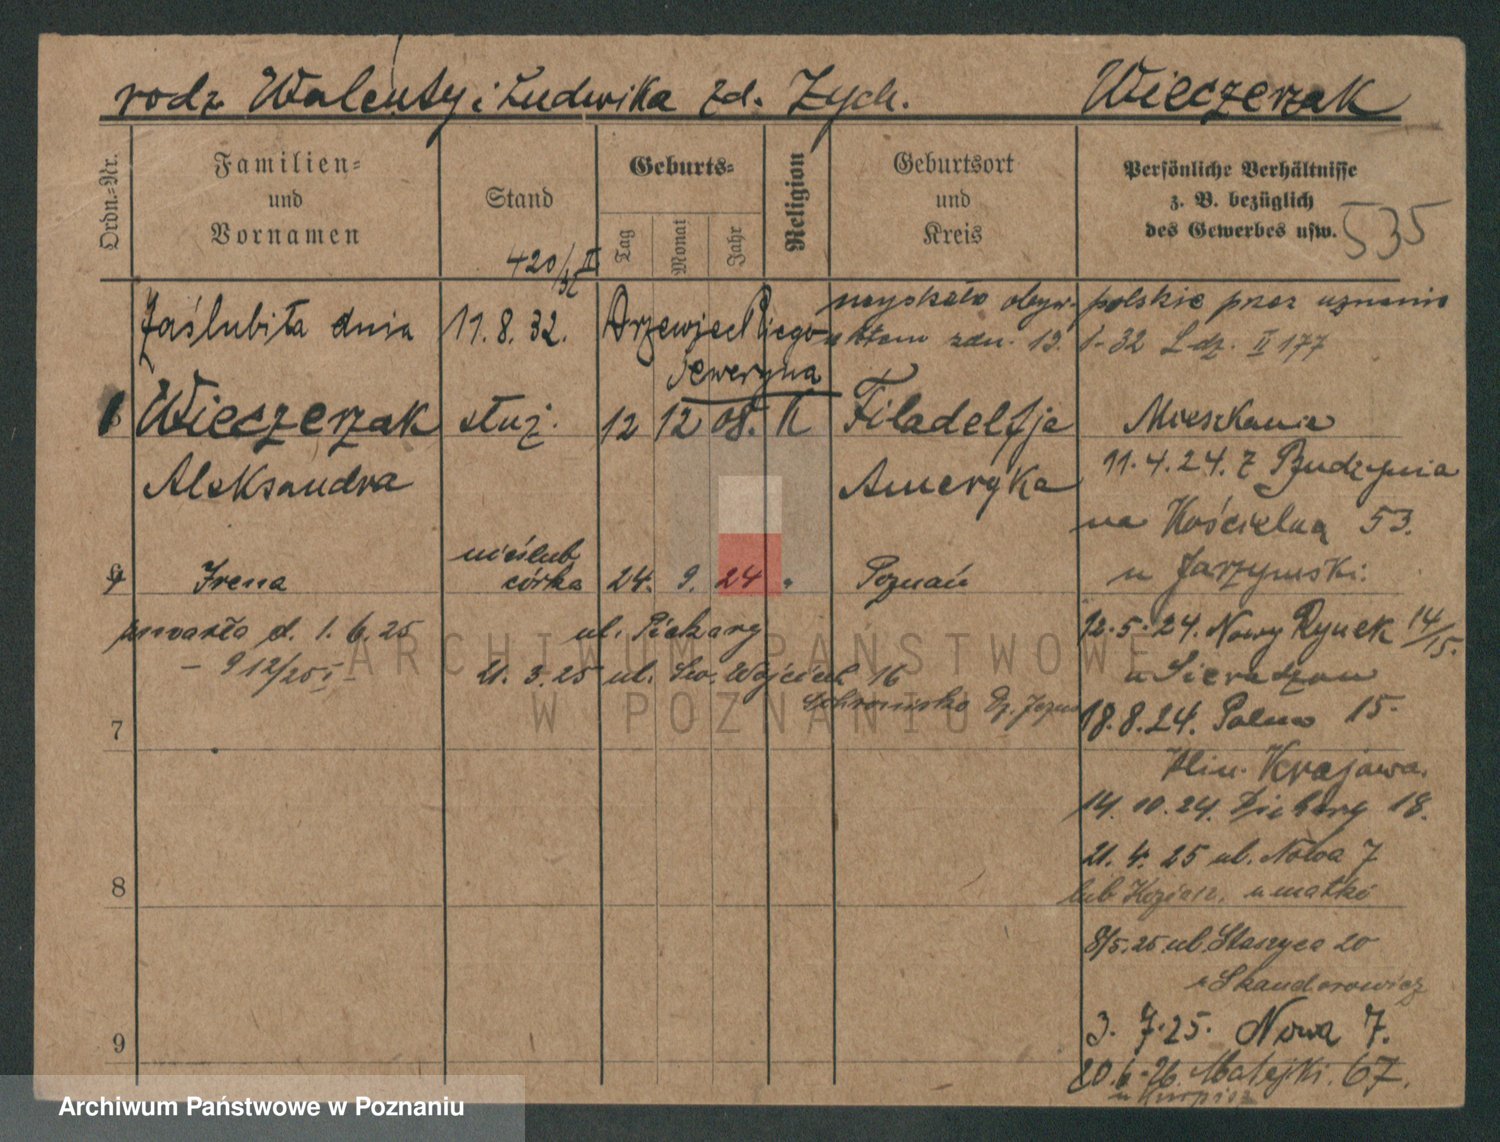 rodz. Walenty i Ludwika zd. Zych. Wieczerzak
Ordn.-Nr.
Familien-
und
Vornamen
Stand
Geburts-
Tag
Monat
Jahr
Religion
Geburtsort
und
Kreis
Persönliche Verhältnisse
z. B. bezüglich
des Gewerbes usw.
535
420/32 II
Zaślubiła dnia 11.8.32. Drzewieckiego
Seweryna
uzyskała obyw. polskie przez uznanie
aktem zdn. 13. 1-32 L.dz. II 177
Wieczerzak służ. 12 12 08. K Filadelfja
Aleksandra Ameryka
Mieszkanie
11.4.24. z Budzynia
na Kościelną 53.
u Jarzynski.
Irena nieślub
córka 24. 9. 24 " Poznań
zmarła d. 1. 6. 25
- 912/25 I -
ul. Piekary
21. 3. 25 ul. Św. Wojciech 16
Schronisko Dz. Jezus
12.5.24. Nowy Rynek 14/15.
u Sieradzan
18.8.24. Polna 15.
Klin. Krajowa.
14. 10. 24. Piekary 18.
21. 4. 25 ul. Nowa 7
lub u matki
8/5.25 ul. Staszyca 20
u Skandorowicz
3. 7.25. Nowa 7.
20.6.26. Matejki. 67.
7
8
9
ARCHIWUM PAŃSTWOWE
W POZNANIU
Archiwum Państwowe w Poznaniu